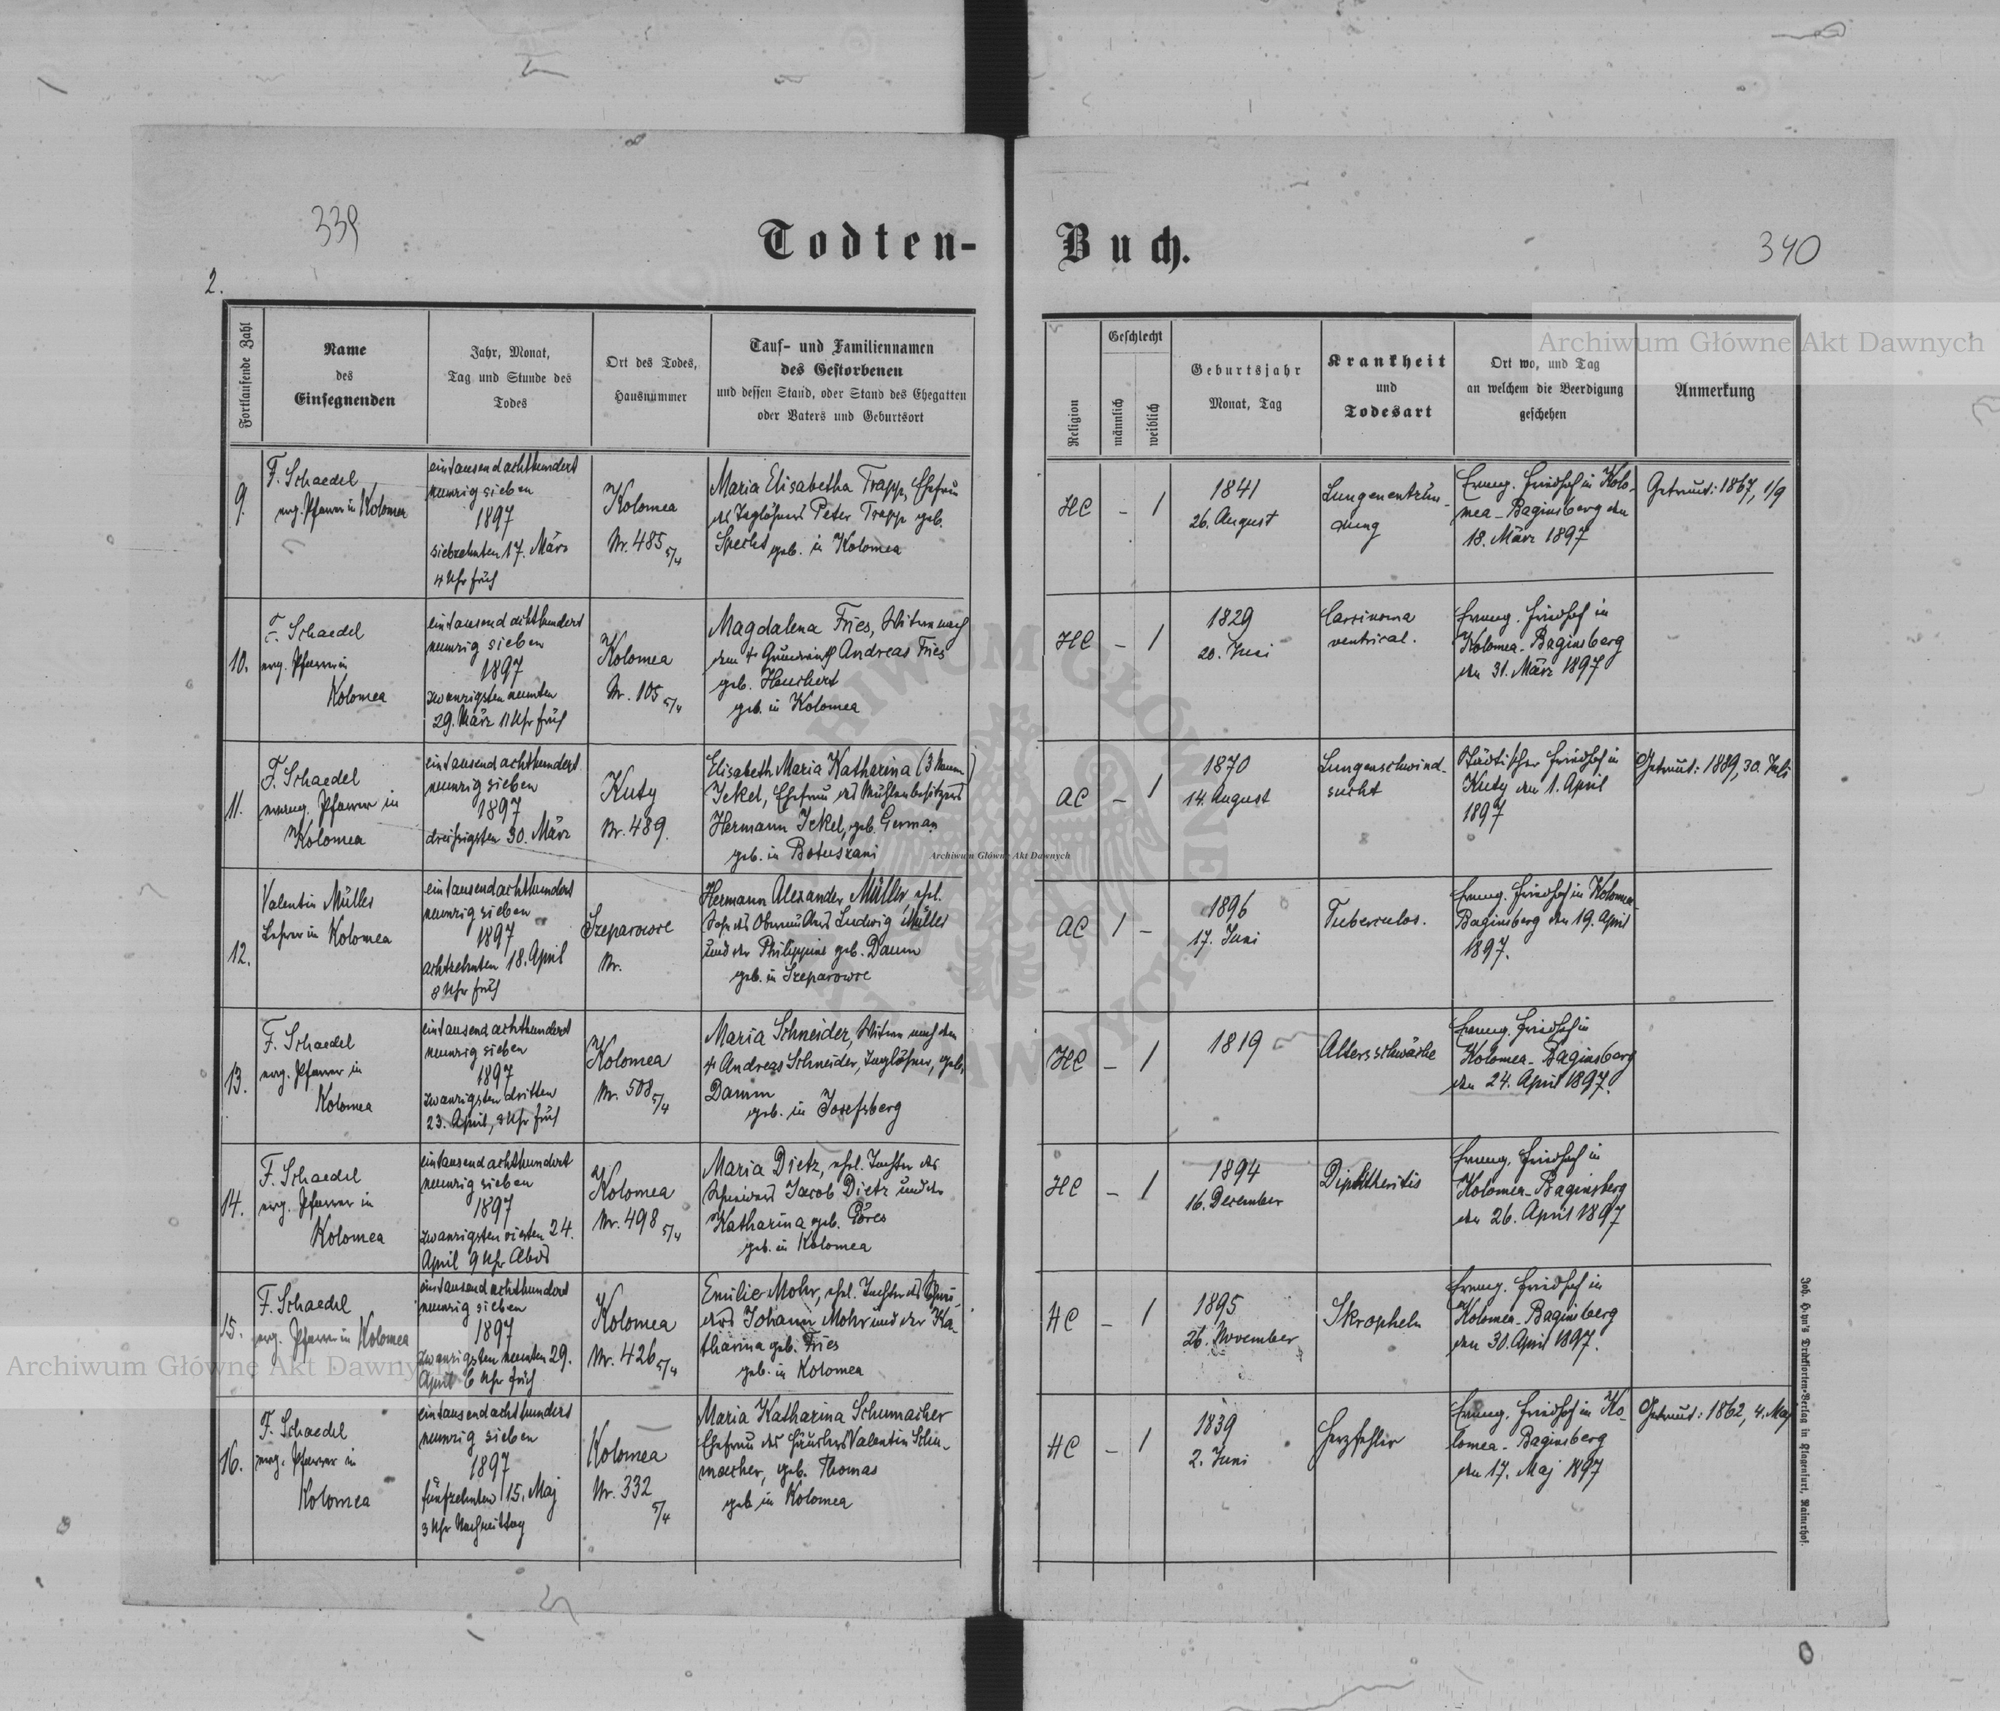 339
Todten-
Buch.
340
2.
Fortlaufende Zahl
Name
des
Einsegnenden
Jahr, Monat,
Tag und Stunde des
Todes
Ort des Todes,
Hausnummer
Tauf- und Familiennamen
des Gestorbenen
und dessen Stand, oder Stand des Ehegatten
oder Vaters und Geburtsort
Religion
Geschlecht
männlich
weiblich
Geburtsjahr
Monat, Tag
Krankheit
und
Todesart
Ort wo, und Tag
an welchem die Beerdigung
geschehen
Anmerkung
9.
F. Schaedel
evg. Pfarrer in Kolomea
eintausend achthundert
neunzig sieben
1897
siebzehnten 17. März
4 Uhr früh
Kolomea
Nr. 485 5/4
Maria Elisabetha Trapp, Ehefrau
des Taglöhners Peter Trapp geb.
Specht geb. in Kolomea
HC – 1
1841
26. August
Lungenentzün-
dung
Evang. Friedhof in Kolo-
mea-Baginsberg den
18. März 1897
Getraut: 1867, 1/9
10.
F. Schaedel
evg. Pfarrer in
Kolomea
eintausend achthundert
neunzig sieben
1897
zwanzigsten neunten
29. März 11 Uhr früh
Kolomea
Nr. 105 5/4
Magdalena Fries, Witwe nach
dem † Grundwirth Andreas Fries
geb. Heuchert
geb. in Kolomea
HC – 1
1829
20. Juni
Carcinoma
ventrical.
Evang. Friedhof in
Kolomea-Baginsberg
den 31. März 1897
11.
F. Schaedel
evang. Pfarrer in
Kolomea
eintausend achthundert
neunzig sieben
1897
dreißigsten 30. März
Kuty
Nr. 489.
Elisabeth Maria Katharina (3 Namen)
Jekel, Ehefrau des Mühlenbesitzers
Hermann Jekel, geb. German
geb. in Botuszani
AC – 1
1870
14. August
Lungenschwind-
sucht
Städtischer Friedhof in
Kuty den 1. April
1897
Getraut: 1889, 30. Juli
12.
Valentin Müller
Lehrer in Kolomea
eintausend achthundert
neunzig sieben
1897
achtzehnten 18. April
8 Uhr früh
Szeparowce
Nr.
Hermann Alexander Müller, ehel.
Sohn des Ludwig Müller
und der Philippine geb. Daum
geb. in Szeparowce
AC 1 –
1896
17. Juni
Tuberculos.
Evang. Friedhof in Kolomea-
Baginsberg den 19. April
1897.
13.
F. Schaedel
evg. Pfarrer in
Kolomea
eintausend achthundert
neunzig sieben
1897
zwanzigsten dritten
23. April, 8 Uhr früh
Kolomea
Nr. 508 5/4
Maria Schneider, Witwe nach dem
† Andreas Schneider, Taglöhner, geb.
Damm
geb. in Josefsberg
HC – 1
1819
Altersschwäche
Evang. Friedhof in
Kolomea-Baginsberg
den 24. April 1897.
14.
F. Schaedel
evg. Pfarrer in
Kolomea
eintausend achthundert
neunzig sieben
1897
zwanzigsten vierten 24.
April 9 Uhr Abds
Kolomea
Nr. 498 5/4
Maria Dietz, ehel. Tochter des
Schneiders Jacob Dietz und der
Katharina geb. Pores
geb. in Kolomea
HC – 1
1894
16. December
Diphtheritis
Evang. Friedhof in
Kolomea-Baginsberg
den 26. April 1897
15.
F. Schaedel
evg. Pfarrer in Kolomea
eintausend achthundert
neunzig sieben
1897
zwanzigsten neunten 29.
April 6 Uhr früh
Kolomea
Nr. 426 5/4
Emilie Mohr, ehel. Tochter des Schnei-
ders Johann Mohr und der Ka-
tharina geb. Fries
geb. in Kolomea
HC – 1
1895
26. November
Skropheln
Evang. Friedhof in
Kolomea-Baginsberg
den 30. April 1897.
16.
F. Schaedel
evg. Pfarrer in
Kolomea
eintausend achthundert
neunzig sieben
1897
fünfzehnten 15. Maj
3 Uhr Nachmittag
Kolomea
Nr. 332
5/4
Maria Katharina Schumacher
Ehefrau des Häuslers Valentin Schu-
macher, geb. Thomas
geb. in Kolomea
HC – 1
1839
2. Juni
Herzfehler
Evang. Friedhof in Ko-
lomea-Baginsberg
den 17. Maj 1897
Getraut: 1862, 4. Maj
Joh. Heyn's Drucksorten-Verlag in Klagenfurt, Rainerhof.
Archiwum Główne Akt Dawnych
Archiwum Główne Akt Dawnych
Archiwum Główne Akt Dawnych
ARCHIWUM GŁÓWNE AKT DAWNYCH